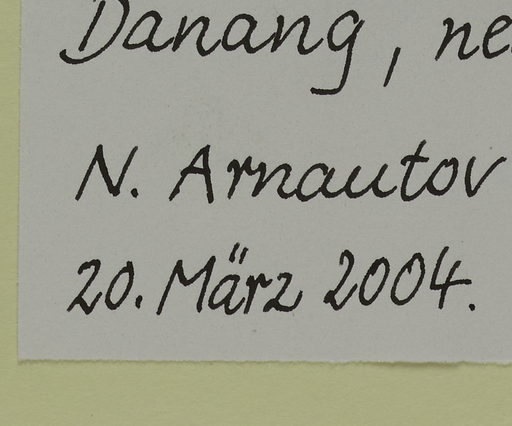 Danang, ne
N. Arnautov
20. März 2004.